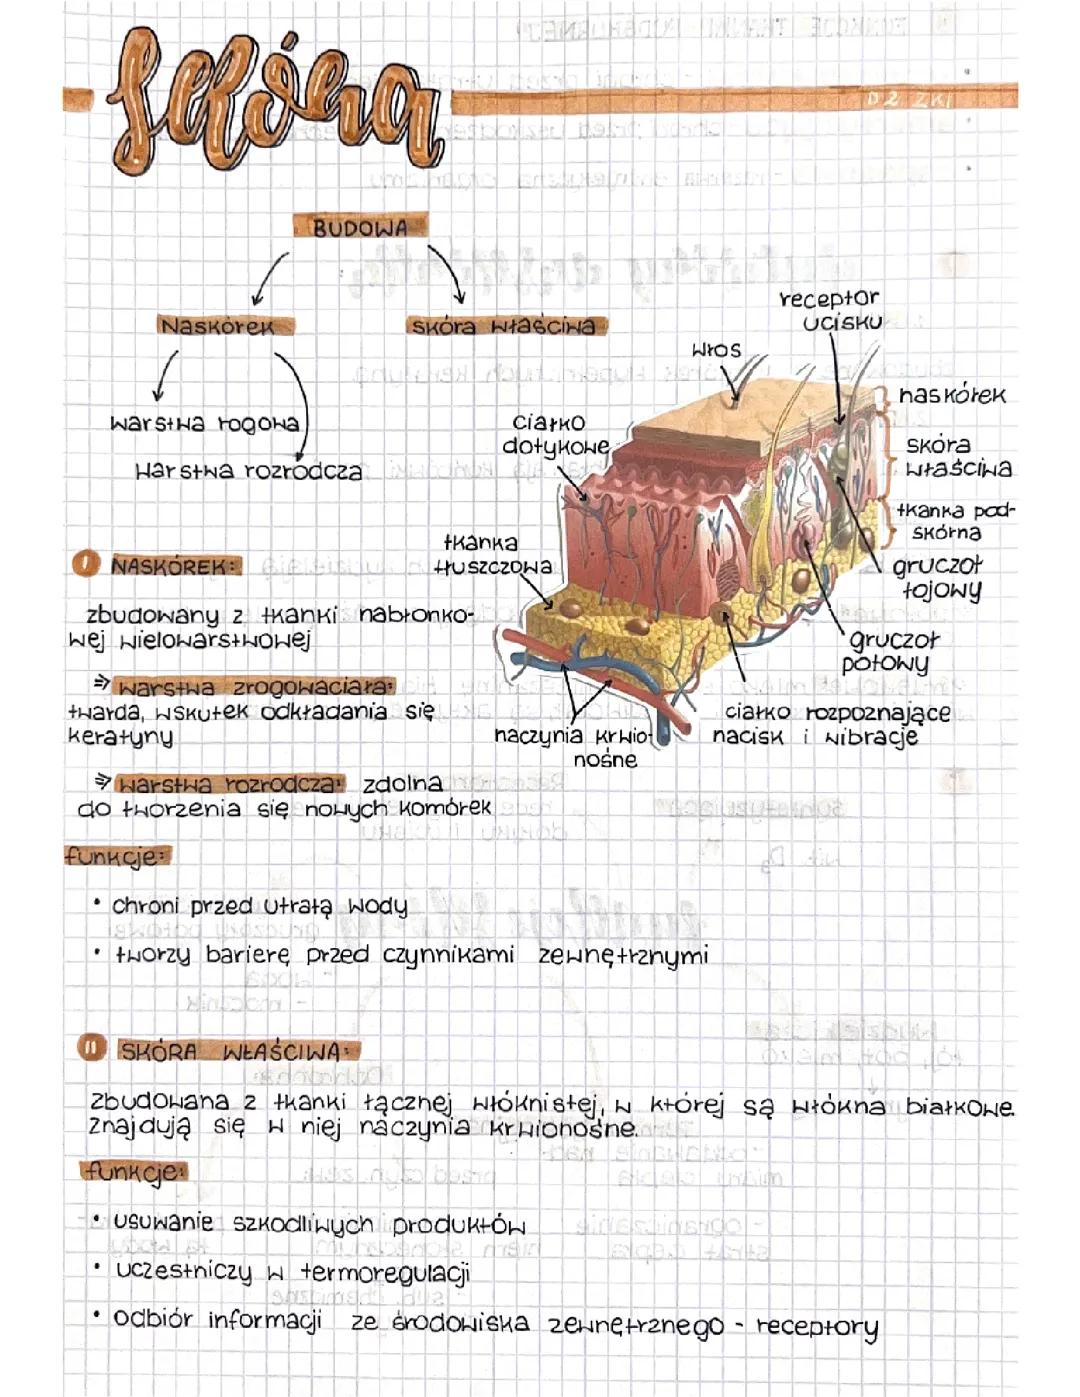 Skóra
BUDOWA
Naskórek
skóra właściwa
warstwa rogowa
warstwa rozrodcza
receptor
ucisku
włos
naskórek
ciałko
dotykowe
skóra
właściwa
tkanka pod-
skórna
tkanka
tłuszczowa
gruczoł
łojowy
gruczoł
potowy
ciałko rozpoznające
nacisk i wibracje
naczynia krwio-
nośne
I NASKÓREK:
zbudowany z tkanki nabłonko-
wej wielowarstwowej
⇒ warstwa zrogowaciała:
twarda, wskutek odkładania się
keratyny
⇒ warstwa rozrodcza: zdolna
do tworzenia się nowych komórek
funkcje:
• chroni przed utratą wody
• tworzy barierę przed czynnikami zewnętrznymi
II SKÓRA WŁAŚCIWA:
zbudowana z tkanki łącznej włóknistej, w której są włókna białkowe.
znajdują się w niej naczynia krwionośne.
funkcje:
• usuwanie szkodliwych produktów
• uczestniczy w termoregulacji
• odbiór informacji ze środowiska zewnętrznego - receptory